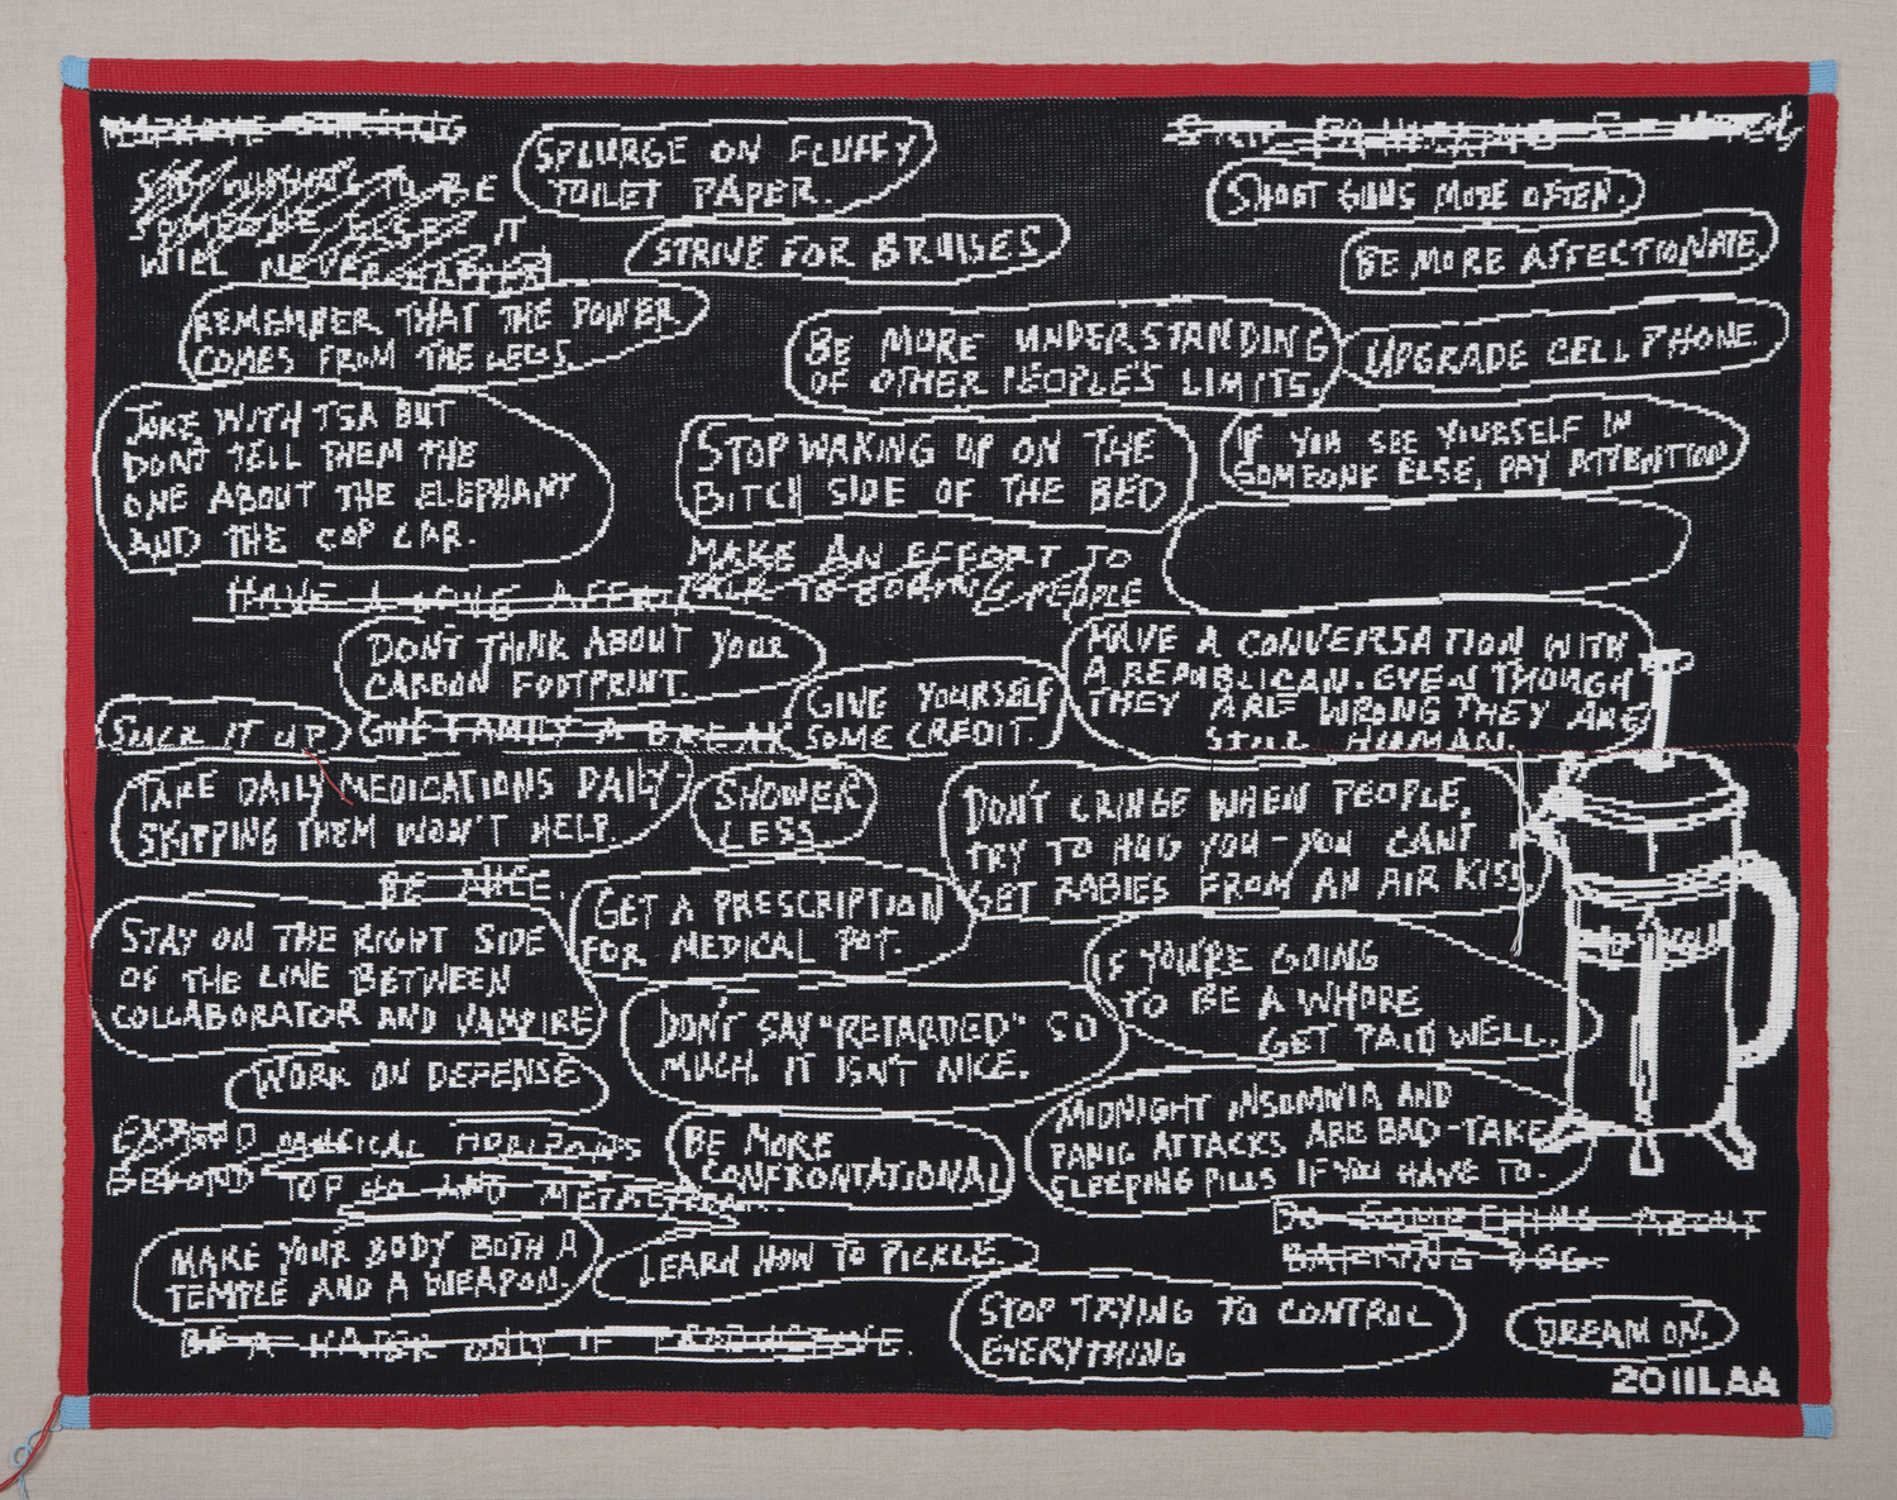 SPLURGE ON FLUFFY
TOILET PAPER.
SHOOT GUNS MORE OFTEN.
BE
SOMEONE ELSE? IT
WILL NEVER HAPPEN
STRIVE FOR BRUISES
BE MORE AFFECTIONATE
REMEMBER THAT THE POWER
COMES FROM THE LEGS
BE MORE UNDERSTANDING
OF OTHER PEOPLE'S LIMITS.
UPGRADE CELL PHONE.
JOKE WITH TSA BUT
DON'T TELL THEM THE
ONE ABOUT THE ELEPHANT
AND THE COP CAR.
STOP WAKING UP ON THE
BITCH SIDE OF THE BED
IF YOU SEE YOURSELF IN
SOMEONE ELSE, PAY ATTENTION
MAKE AN EFFORT TO
TALK TO BORING PEOPLE
HAVE A LONG
DON'T THINK ABOUT YOUR
CARBON FOOTPRINT.
GIVE YOURSELF
SOME CREDIT.
HAVE A CONVERSATION WITH
A REPUBLICAN. EVEN THOUGH
THEY ARE WRONG THEY ARE
STILL HUMAN.
SUCK IT UP
GIVE FAMILY A BREAK
TAKE DAILY MEDICATIONS DAILY-
SKIPPING THEM WON'T HELP.
SHOWER
LESS
DON'T CRINGE WHEN PEOPLE,
TRY TO HUG YOU - YOU CAN'T
GET RABIES FROM AN AIR KISS
BE NICE.
GET A PRESCRIPTION
FOR MEDICAL POT.
STAY ON THE RIGHT SIDE
OF THE LINE BETWEEN
COLLABORATOR AND VAMPIRE
IF YOU'RE GOING
TO BE A WHORE
GET PAID WELL.
DON'T SAY "RETARDED" SO
MUCH. IT ISN'T NICE.
WORK ON DEFENSE
EXPAND MUSICAL HORIZONS
BEYOND TOP 40 AND
BE MORE
CONFRONTATIONAL
MIDNIGHT INSOMNIA AND
PANIC ATTACKS ARE BAD - TAKE
SLEEPING PILLS IF YOU HAVE TO.
DO SOMETHING ABOUT
BARKING DOG.
MAKE YOUR BODY BOTH A
TEMPLE AND A WEAPON.
LEARN HOW TO PICKLE.
STOP TRYING TO CONTROL
EVERYTHING
DREAM ON.
BE A HATER ONLY IF
2011LAA